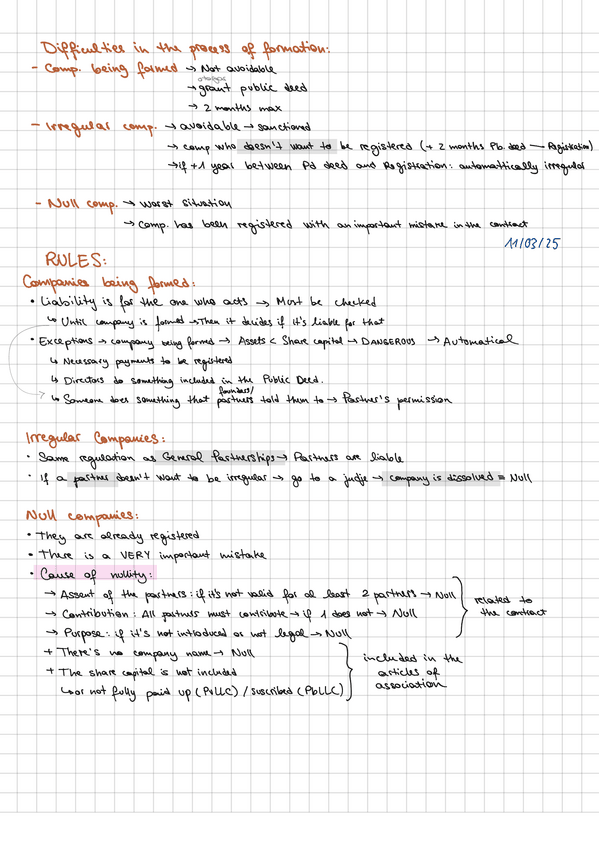 Difficulties in the process of formation:
- Comp. being formed → Not avoidable
→ grant public deed
→ 2 months max
- Irregular comp. → avoidable → sanctioned
→ comp who doesn't want to be registered (+ 2 months Pb. deed — Registration)
→ if +1 year between Pd deed and Registration: automatically irregular
- Null comp. → worst situation
→ Comp. has been registered with an important mistake in the contract
11/03/25
RULES:
Companies being formed:
• Liability is for the one who acts → Must be checked
↳ Until company is formed → Then it decides if it's liable for that
• Exceptions → company being formed → Assets < Share capital → DANGEROUS → Automatical
↳ Necessary payments to be registered
↳ Directors do something included in the Public Deed.
founders/
↳ Someone does something that partners told them to → Partner's permission
Irregular Companies:
• Same regulation as General Partnerships → Partners are liable
• If a partner doesn't want to be irregular → go to a judje → company is dissolved = Null
Null companies:
• They are already registered
• There is a VERY important mistake
• Cause of nullity:
→ Assent of the partners: if it's not valid for al least 2 partners → Null
→ Contribution: All partner must contribute → if 1 does not → Null
→ Purpose: if it's not introduced or not legal → Null
related to
the contract
+ There's no company name → Null
+ The share capital is not included
↳ or not fully paid up (PvLLC) / suscribed (PbLLC)
included in the
articles of
association